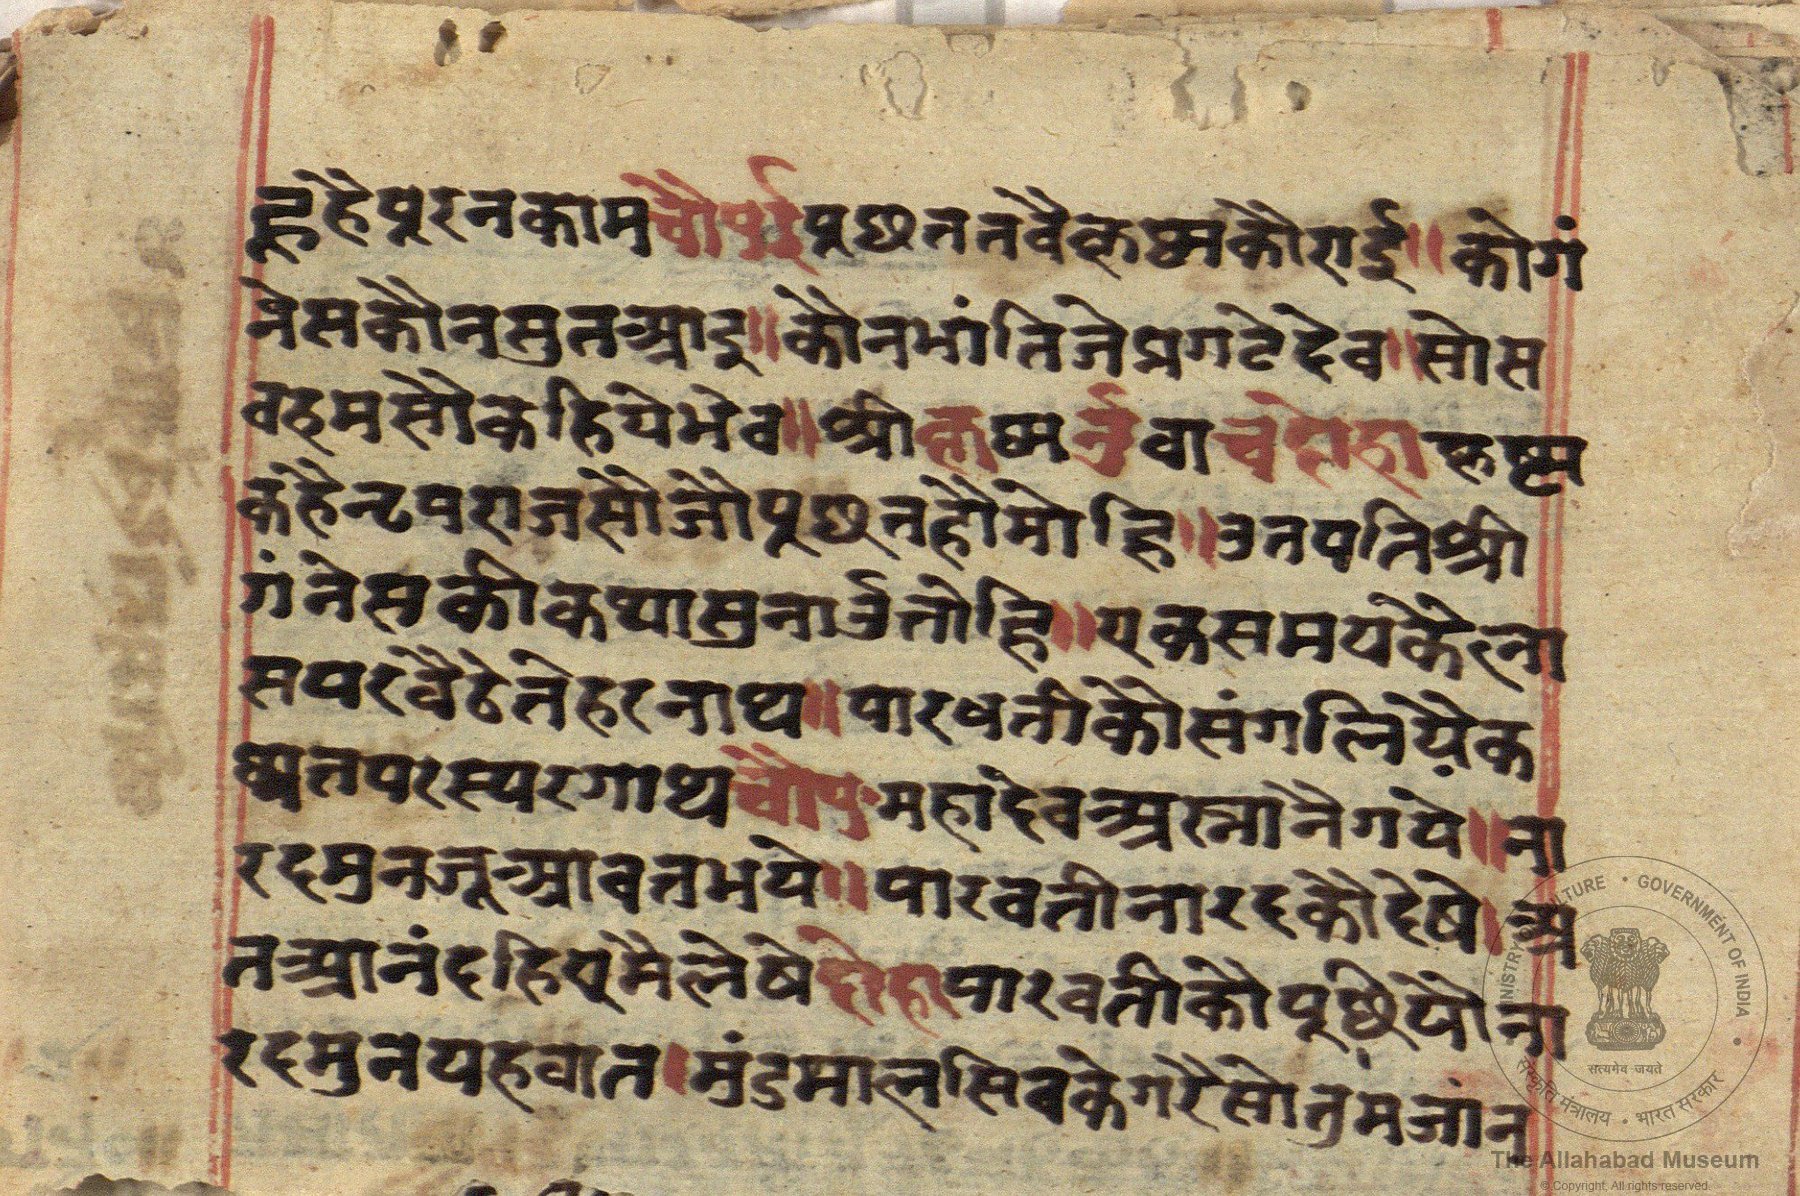 ह्रहैपूरनकामचौपईपूछततवैकृष्मकौराई॥कोगं
नेसकौनसुतआदू॥कौनभांतिजेप्रगटेदेव॥सोस
वहमसौकहियेभेव॥श्रीकृष्मर्नवाचदोहाकृष्ट्म
कहैन्टपराजसौजौपूछतहौमोहि॥उतपतिश्री
गंनेसकीकथासुनाउंतोहि॥यकसमयकैला
सपरवैठेतेहरनाथ॥पारवतीकौसंगलियै़क
ष्यतपरस्परगाथचौपई महांदेवअस्नानैगये॥ना
रदमुनजूआवतभये॥पारवतीनारदकौदेषे।अ
तआनंदहियमैलेषेदोहापारवतीकौपूछियौना
रदमुनयहवात।मुंडमालसिवकेगरैसोतुमजांन
सत्यमेव जयते
MINISTRY OF CULTURE • GOVERNMENT OF INDIA •
संस्कृति मंत्रालय • भारत सरकार
The Allahabad Museum
© Copyright, All rights reserved